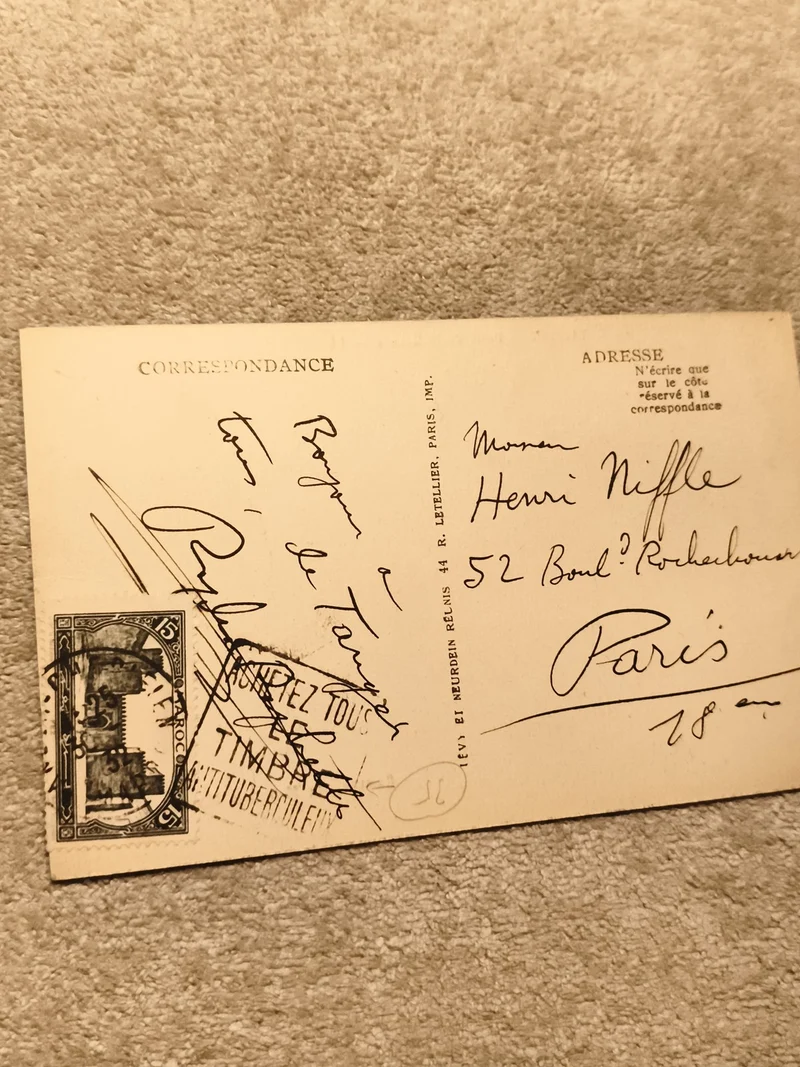 CORRESPONDANCE
Bonjour à
tous,
de Tanger
ADRESSE
N'écrire que
sur le côté
réservé à la
correspondance
LÉVY ET NEURDEIN RÉUNIS 44 R. LETELLIER, PARIS, IMP.
Henri Niffle
52 Boulᵈ Rochechouart
Paris
18 eme
15
MAROC
15
ACHETEZ TOUS
LE
TIMBRE
ANTITUBERCULEUX
35